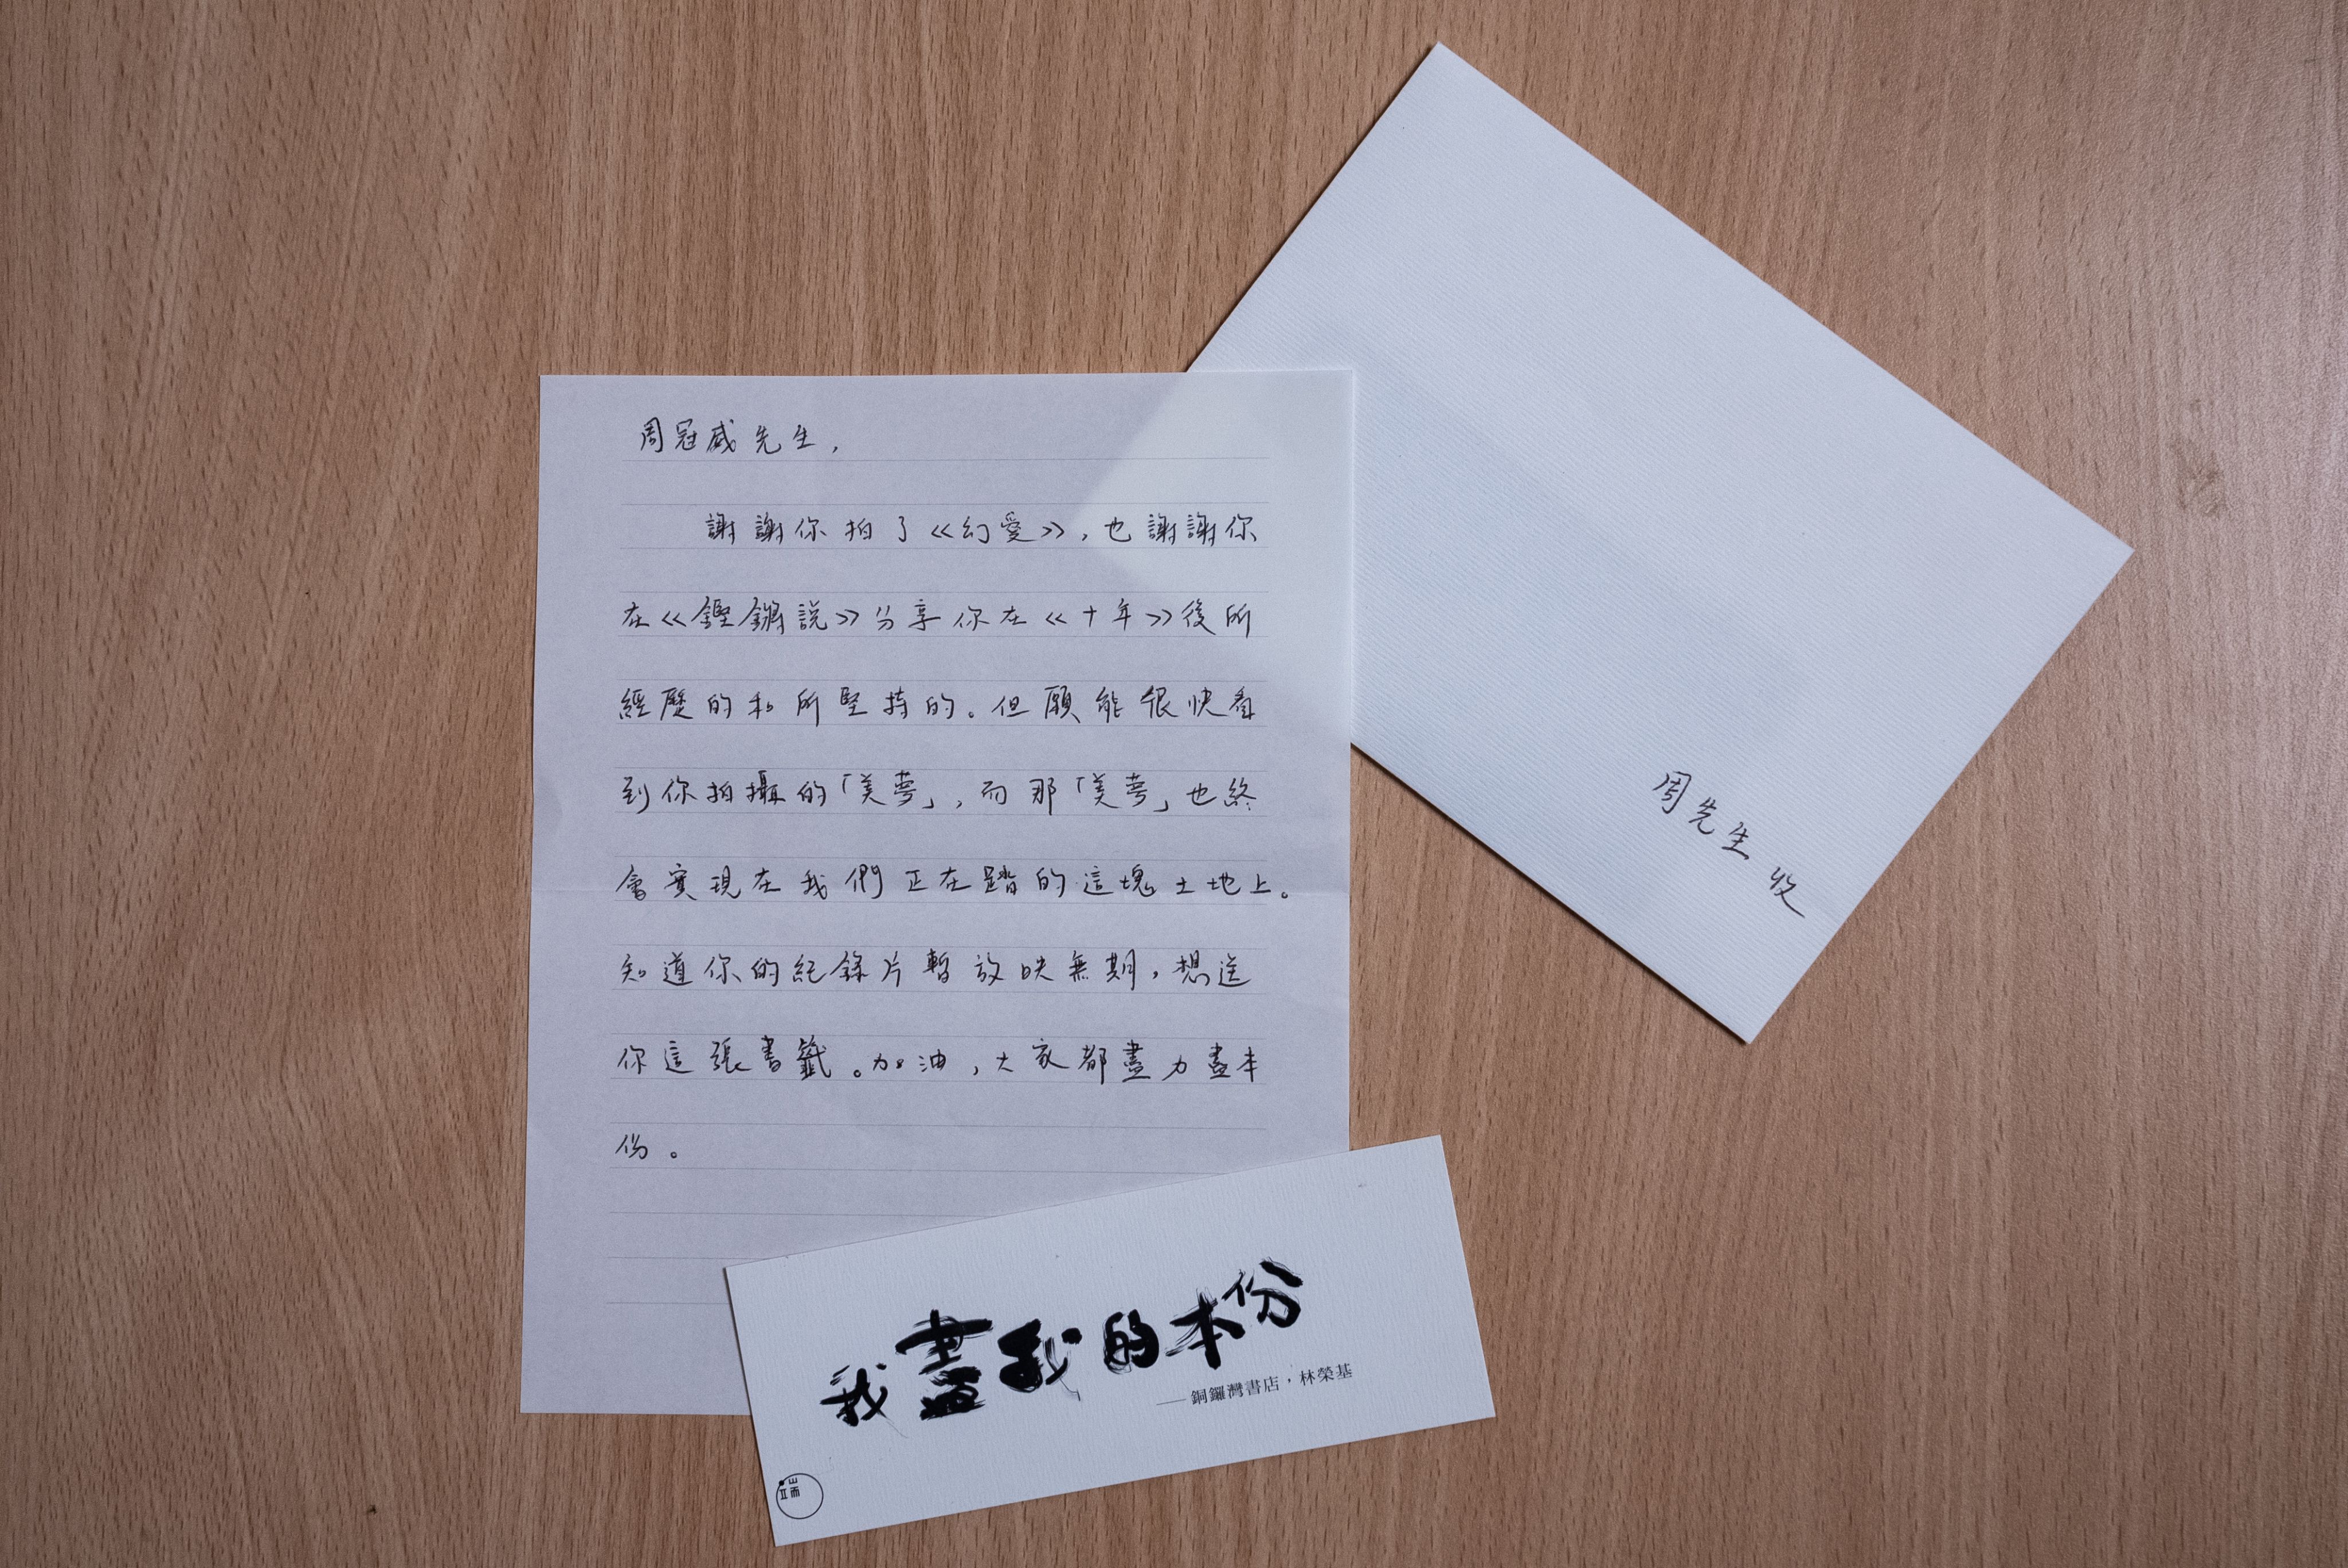 周冠威先生，
謝謝你拍了《幻愛》，也謝謝你
在《鏗鏘說》分享你在《十年》後所
經歷的和所堅持的。但願能很快看
到你拍攝的「美夢」，而那「美夢」也終
會實現在我們正在踏的這塊土地上。
知道你的紀錄片暫放映無期，想送
你這張書籤。加油，大家都盡力盡本
份。
周先生 收
我盡我的本份
——銅鑼灣書店，林榮基
端